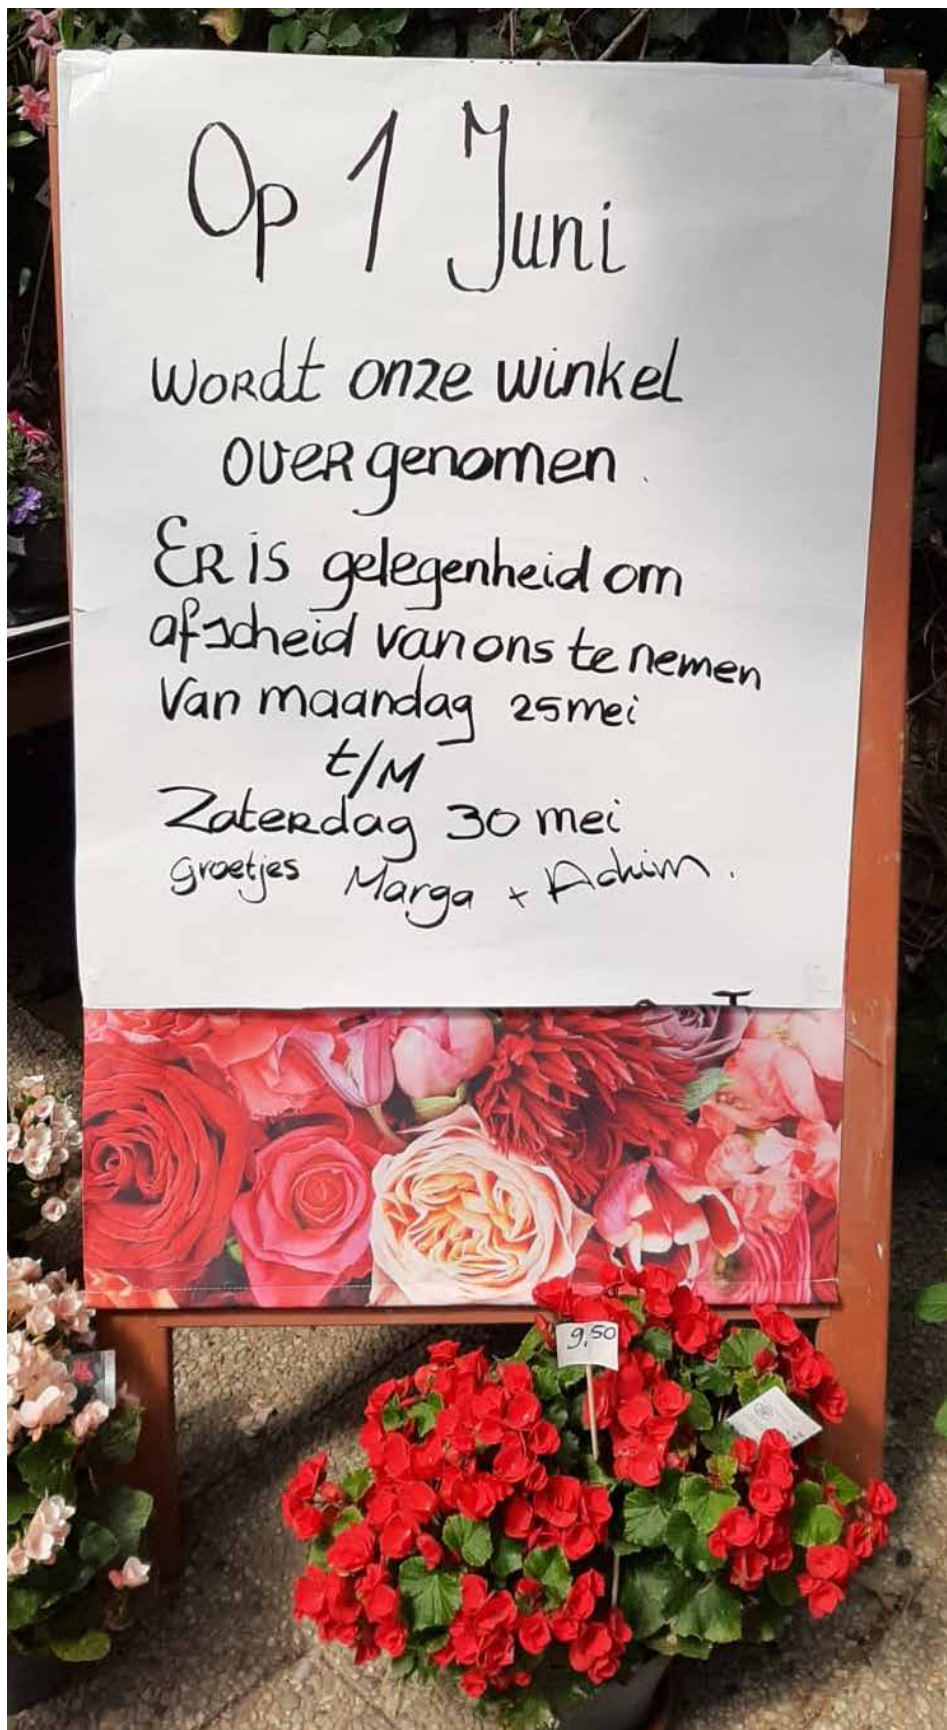 Op 1 Juni
wordt onze winkel
overgenomen.
Er is gelegenheid om
afscheid van ons te nemen
Van maandag 25 mei
t/m
Zaterdag 30 mei
groetjes Marga + Achim.
9,50